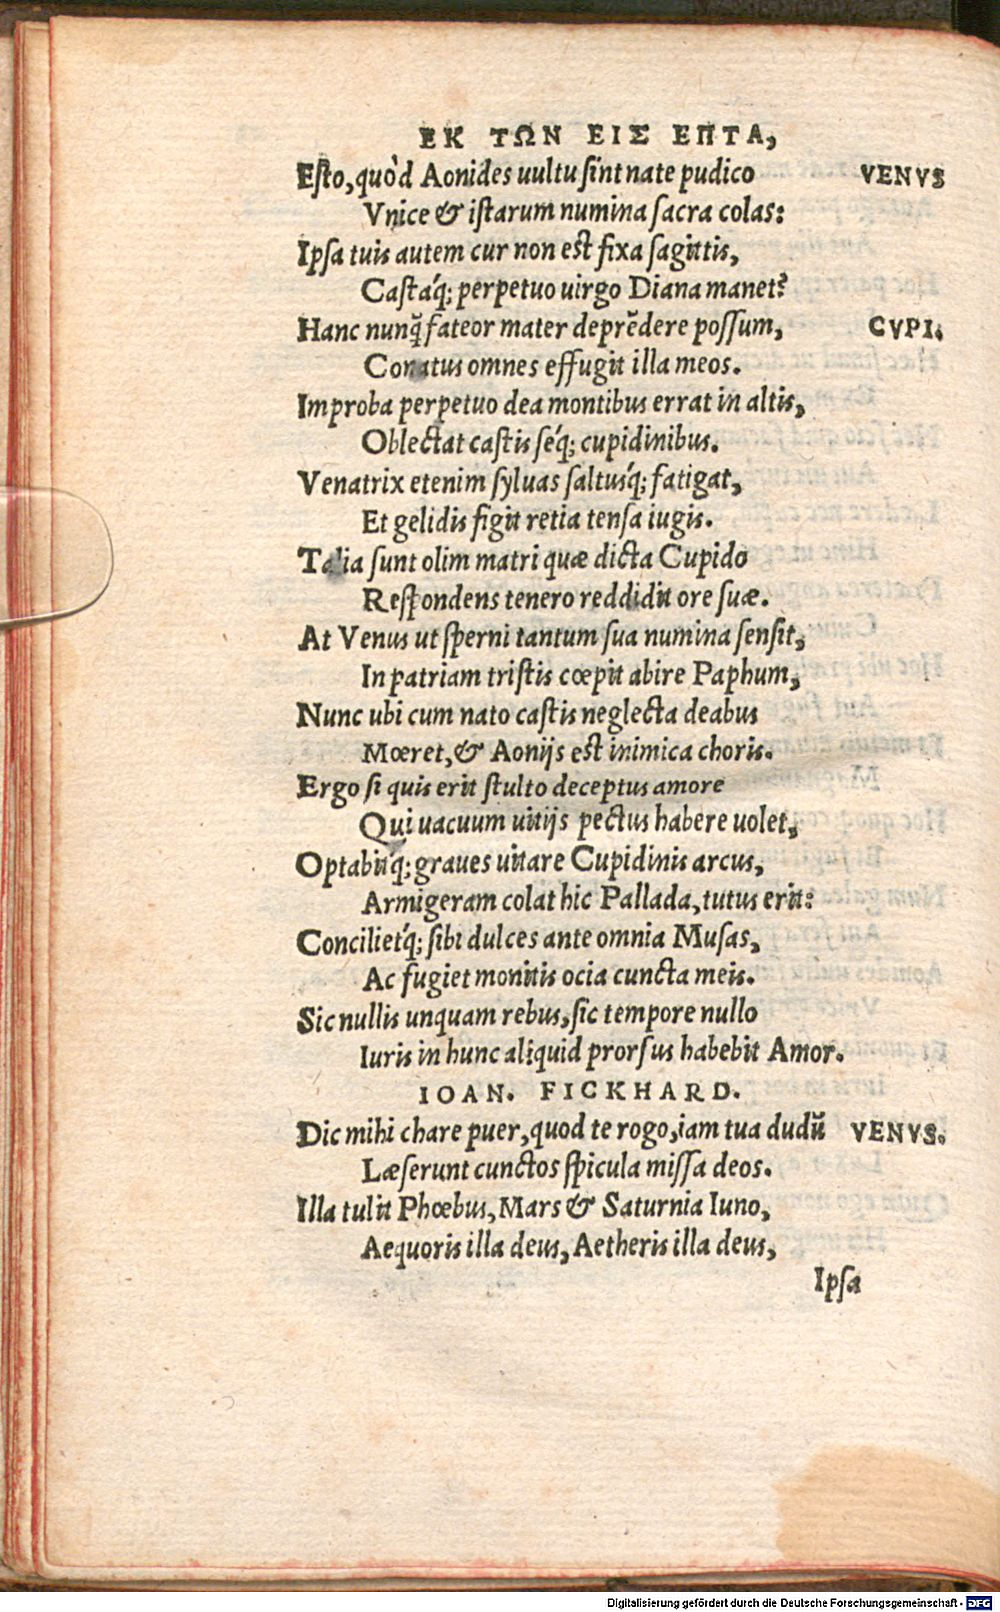 ΕΚ ΤΩΝ ΕΙΣ ΕΠΤΑ,
Esto, quòd Aonides uultu sint nate pudico VENVS
Vnice & istarum numina sacra colas:
Ipsa tuis autem cur non est fixa sagittis,
Castáq; perpetuo uirgo Diana manet?
Hanc nunq̃ fateor mater deprẽdere possum, CVPI.
Conatus omnes effugit illa meos.
Improba perpetuo dea montibus errat in altis,
Oblectat castis séq; cupidinibus.
Venatrix etenim syluas saltusq́; fatigat,
Et gelidis figit retia tensa iugis.
Talia sunt olim matri quæ dicta Cupido
Respondens tenero reddidit ore suæ.
At Venus ut sperni tantum sua numina sensit,
In patriam tristis cœpit abire Paphum,
Nunc ubi cum nato castis neglecta deabus
Mœret, & Aonijs est inimica choris.
Ergo si quis erit stulto deceptus amore
Qui uacuum uitijs pectus habere uolet,
Optabitq́; graues uitare Cupidinis arcus,
Armigeram colat hic Pallada, tutus erit:
Concilietq́; sibi dulces ante omnia Musas,
Ac fugiet monitis ocia cuncta meis.
Sic nullis unquam rebus, sic tempore nullo
Iuris in hunc aliquid prorsus habebit Amor.
IOAN. FICKHARD.
Dic mihi chare puer, quod te rogo, iam tua dudũ VENVS.
Læserunt cunctos spicula missa deos.
Illa tulit Phœbus, Mars & Saturnia Iuno,
Aequoris illa deus, Aetheris illa deus,
Ipsa
Digitalisierung gefördert durch die Deutsche Forschungsgemeinschaft - DFG